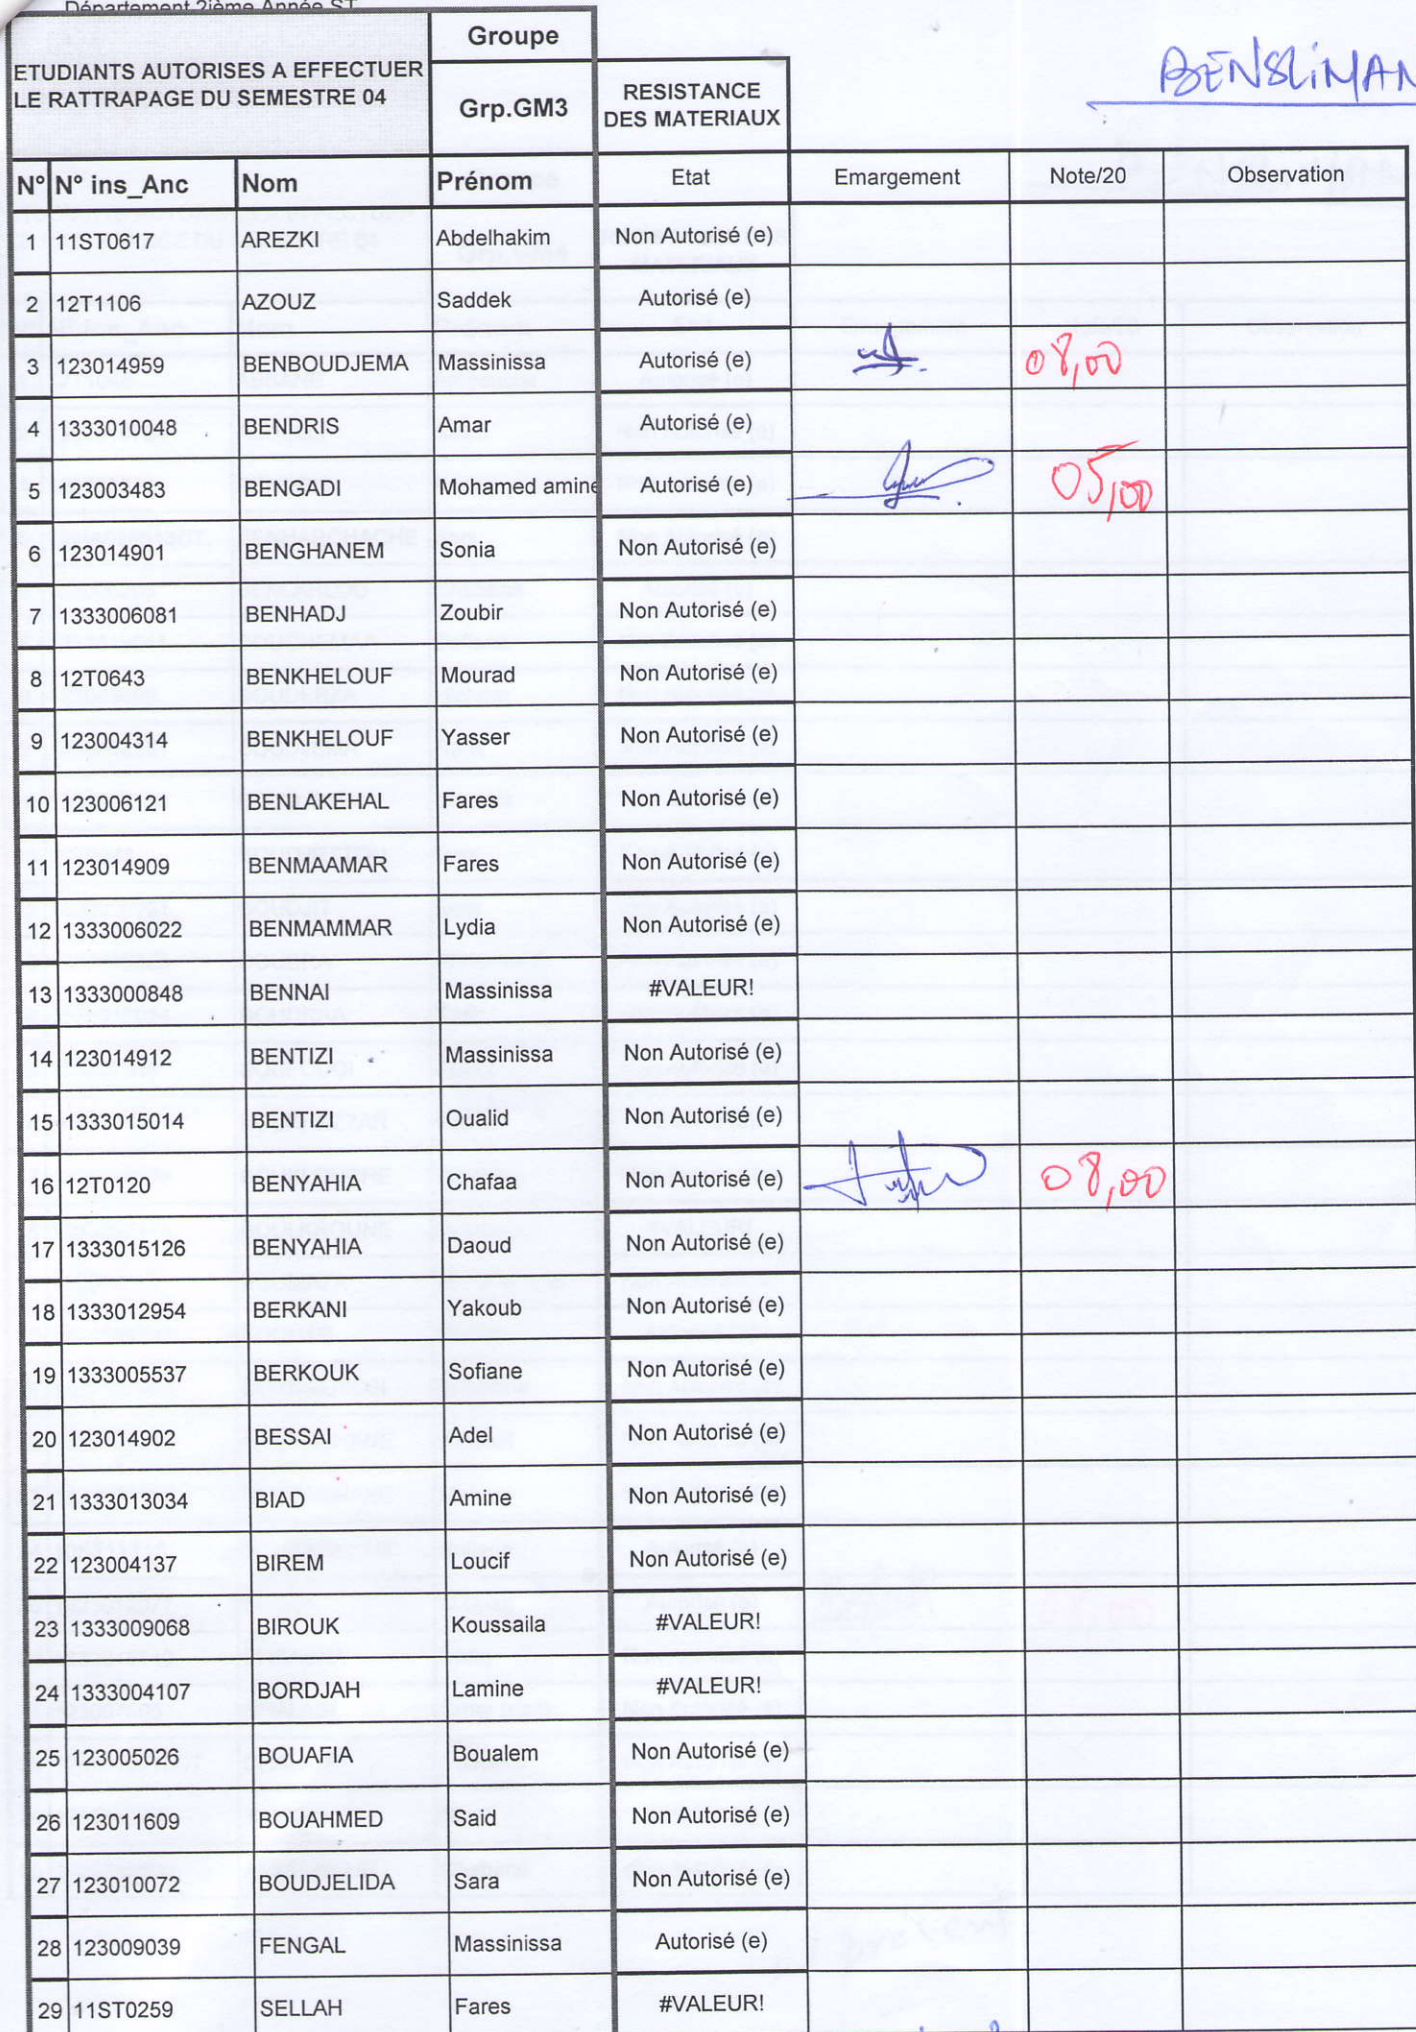 Département 2ième Année ST
ETUDIANTS AUTORISES A EFFECTUER LE RATTRAPAGE DU SEMESTRE 04
Groupe
Grp.GM3
RESISTANCE DES MATERIAUX
BENSLIMAN
N° N° ins_Anc Nom Prénom Etat Emargement Note/20 Observation
1 11ST0617 AREZKI Abdelhakim Non Autorisé (e)
2 12T1106 AZOUZ Saddek Autorisé (e)
3 123014959 BENBOUDJEMA Massinissa Autorisé (e) 08,00
4 1333010048 BENDRIS Amar Autorisé (e)
5 123003483 BENGADI Mohamed amine Autorisé (e) 05,00
6 123014901 BENGHANEM Sonia Non Autorisé (e)
7 1333006081 BENHADJ Zoubir Non Autorisé (e)
8 12T0643 BENKHELOUF Mourad Non Autorisé (e)
9 123004314 BENKHELOUF Yasser Non Autorisé (e)
10 123006121 BENLAKEHAL Fares Non Autorisé (e)
11 123014909 BENMAAMAR Fares Non Autorisé (e)
12 1333006022 BENMAMMAR Lydia Non Autorisé (e)
13 1333000848 BENNAI Massinissa #VALEUR!
14 123014912 BENTIZI Massinissa Non Autorisé (e)
15 1333015014 BENTIZI Oualid Non Autorisé (e)
16 12T0120 BENYAHIA Chafaa Non Autorisé (e) 08,00
17 1333015126 BENYAHIA Daoud Non Autorisé (e)
18 1333012954 BERKANI Yakoub Non Autorisé (e)
19 1333005537 BERKOUK Sofiane Non Autorisé (e)
20 123014902 BESSAI Adel Non Autorisé (e)
21 1333013034 BIAD Amine Non Autorisé (e)
22 123004137 BIREM Loucif Non Autorisé (e)
23 1333009068 BIROUK Koussaila #VALEUR!
24 1333004107 BORDJAH Lamine #VALEUR!
25 123005026 BOUAFIA Boualem Non Autorisé (e)
26 123011609 BOUAHMED Said Non Autorisé (e)
27 123010072 BOUDJELIDA Sara Non Autorisé (e)
28 123009039 FENGAL Massinissa Autorisé (e)
29 11ST0259 SELLAH Fares #VALEUR!